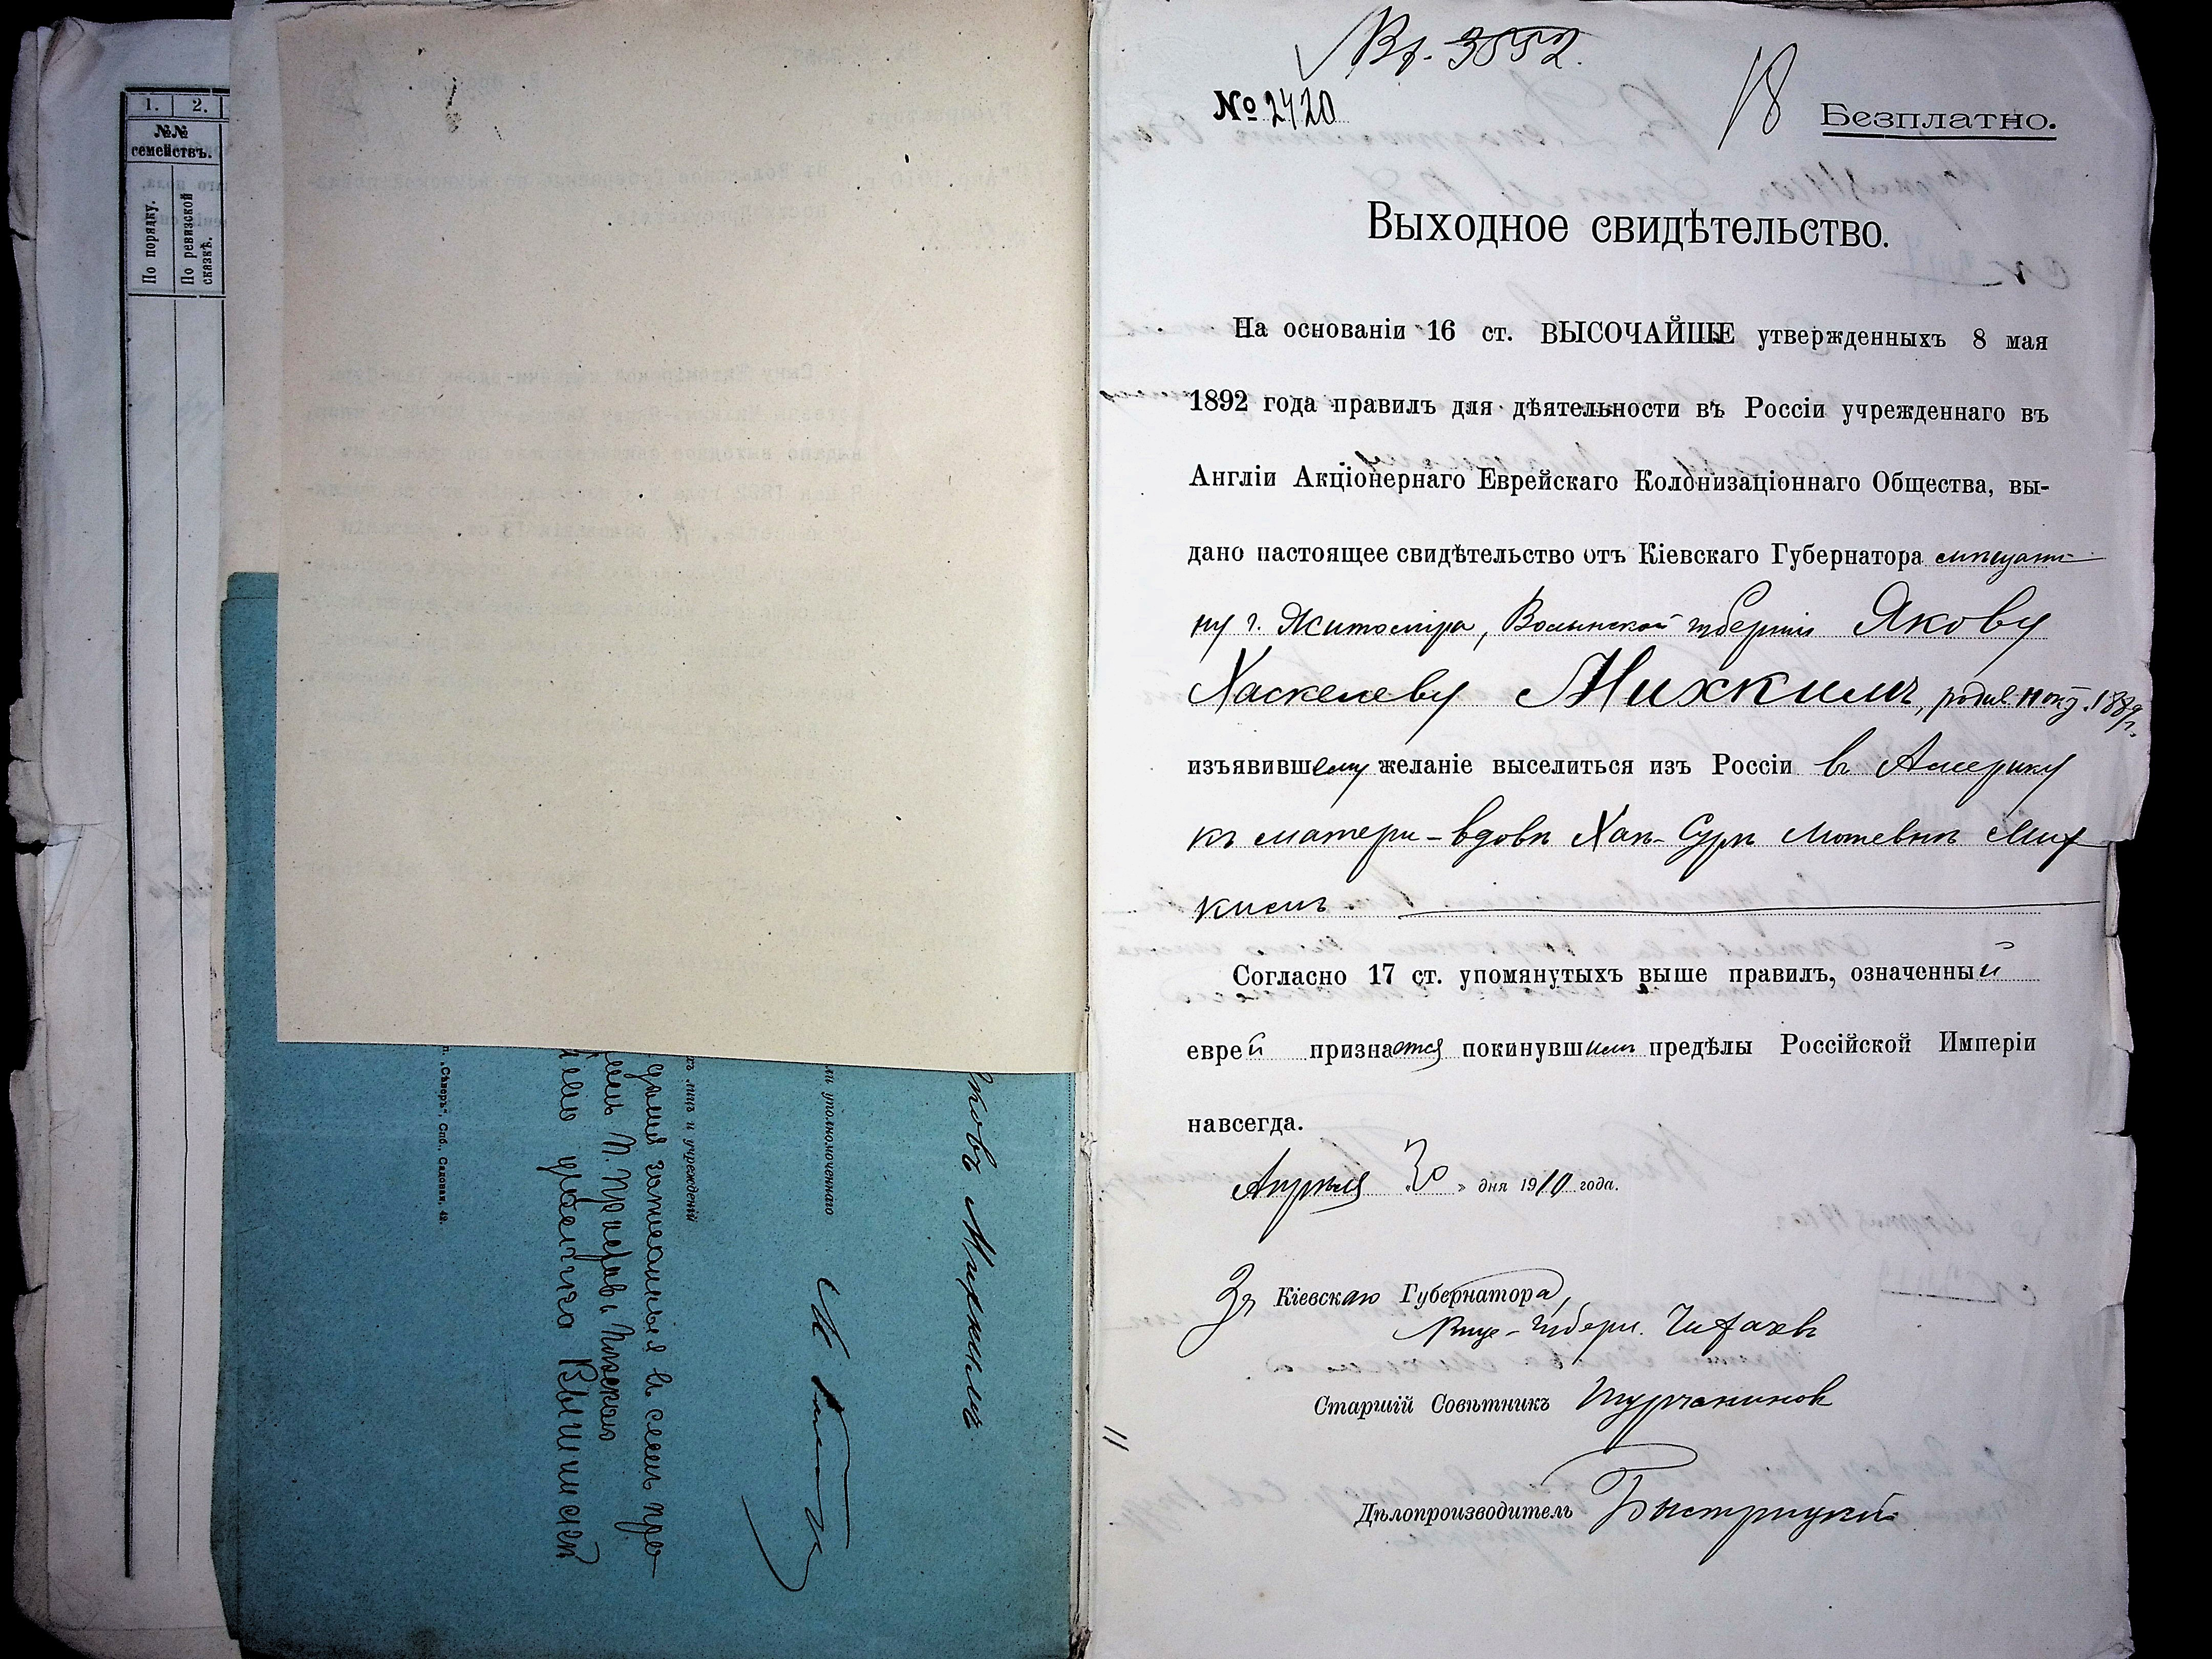 1. 2.
№№
семействъ.
По порядку.
По ревизской
сказкѣ.
Вх. 3552.
№ 2420
18
Безплатно.
Выходное свидѣтельство.
На основаніи 16 ст. ВЫСОЧАЙШЕ утвержденныхъ 8 мая
1892 года правилъ для дѣятельности въ Россіи учрежденнаго въ
Англіи Акціонернаго Еврейскаго Колонизаціоннаго Общества, вы-
дано настоящее свидѣтельство отъ Кіевскаго Губернатора мѣщани-
ну г. Житоміра, Волынской губерніи Якову
Хаскелеву Михкилъ, 1889 г.
изъявившему желаніе выселиться изъ Россіи въ Америку
къ матери-вдовѣ Хаѣ-Сурѣ Мотевнѣ Мих
килъ.
Согласно 17 ст. упомянутыхъ выше правилъ, означенный
еврей признается покинувшимъ предѣлы Россійской Имперіи
навсегда.
Апрѣля 30 » дня 1910 года.
За Кіевскаго Губернатора,
Вице-Губерн. Чихачевъ
Старшій Совѣтникъ Турчаниновъ
Дѣлопроизводитель Быстрицкій
11
уполномоченнаго
лицъ и учрежденій
„Сѣверъ", Спб., Садовая, 42.